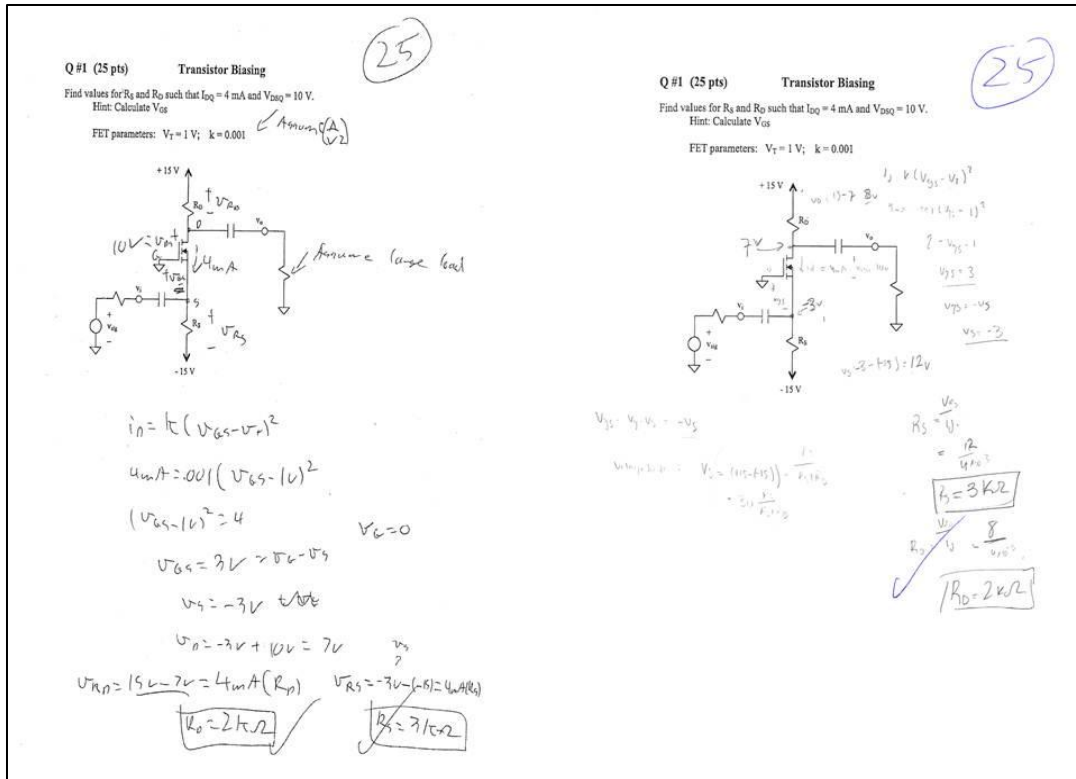 25
Q #1 (25 pts) Transistor Biasing
Find values for RS and RD such that IDQ = 4 mA and VDSQ = 10 V.
Hint: Calculate VGS
FET parameters: VT = 1 V; k = 0.001
Assume (A/V2)
+15 V
RD
+
VRD
-
D
vo
10V = vDS
+
G
4mA
Assume large load
S
vi
+
vsig
-
RS
+
VRS
-
- 15 V
iD = k(vGS-vT)²
4mA = .001(vGS-1V)²
(vGS-1V)² = 4
vG = 0
vGS = 3V = vG-vS
vS = -3V
vD = -3V + 10V = 7V
vRD = 15V-7V = 4mA(RD)
vRS = -3V-(-15) = 4mA(RS)
RD = 2kΩ
RS = 3kΩ
25
Q #1 (25 pts) Transistor Biasing
Find values for RS and RD such that IDQ = 4 mA and VDSQ = 10 V.
Hint: Calculate VGS
FET parameters: VT = 1 V; k = 0.001
+15 V
RD
7V
vo
-3V
vi
+
vsig
-
RS
- 15 V
2 = vgs-1
vgs = 3
vgs = -vs
vs = -3
-3-(-15) = 12V
Vgs = Vg-Vs = -Vs
RS =
= 12
RS = 3KΩ
RD =
8
RD = 2KΩ